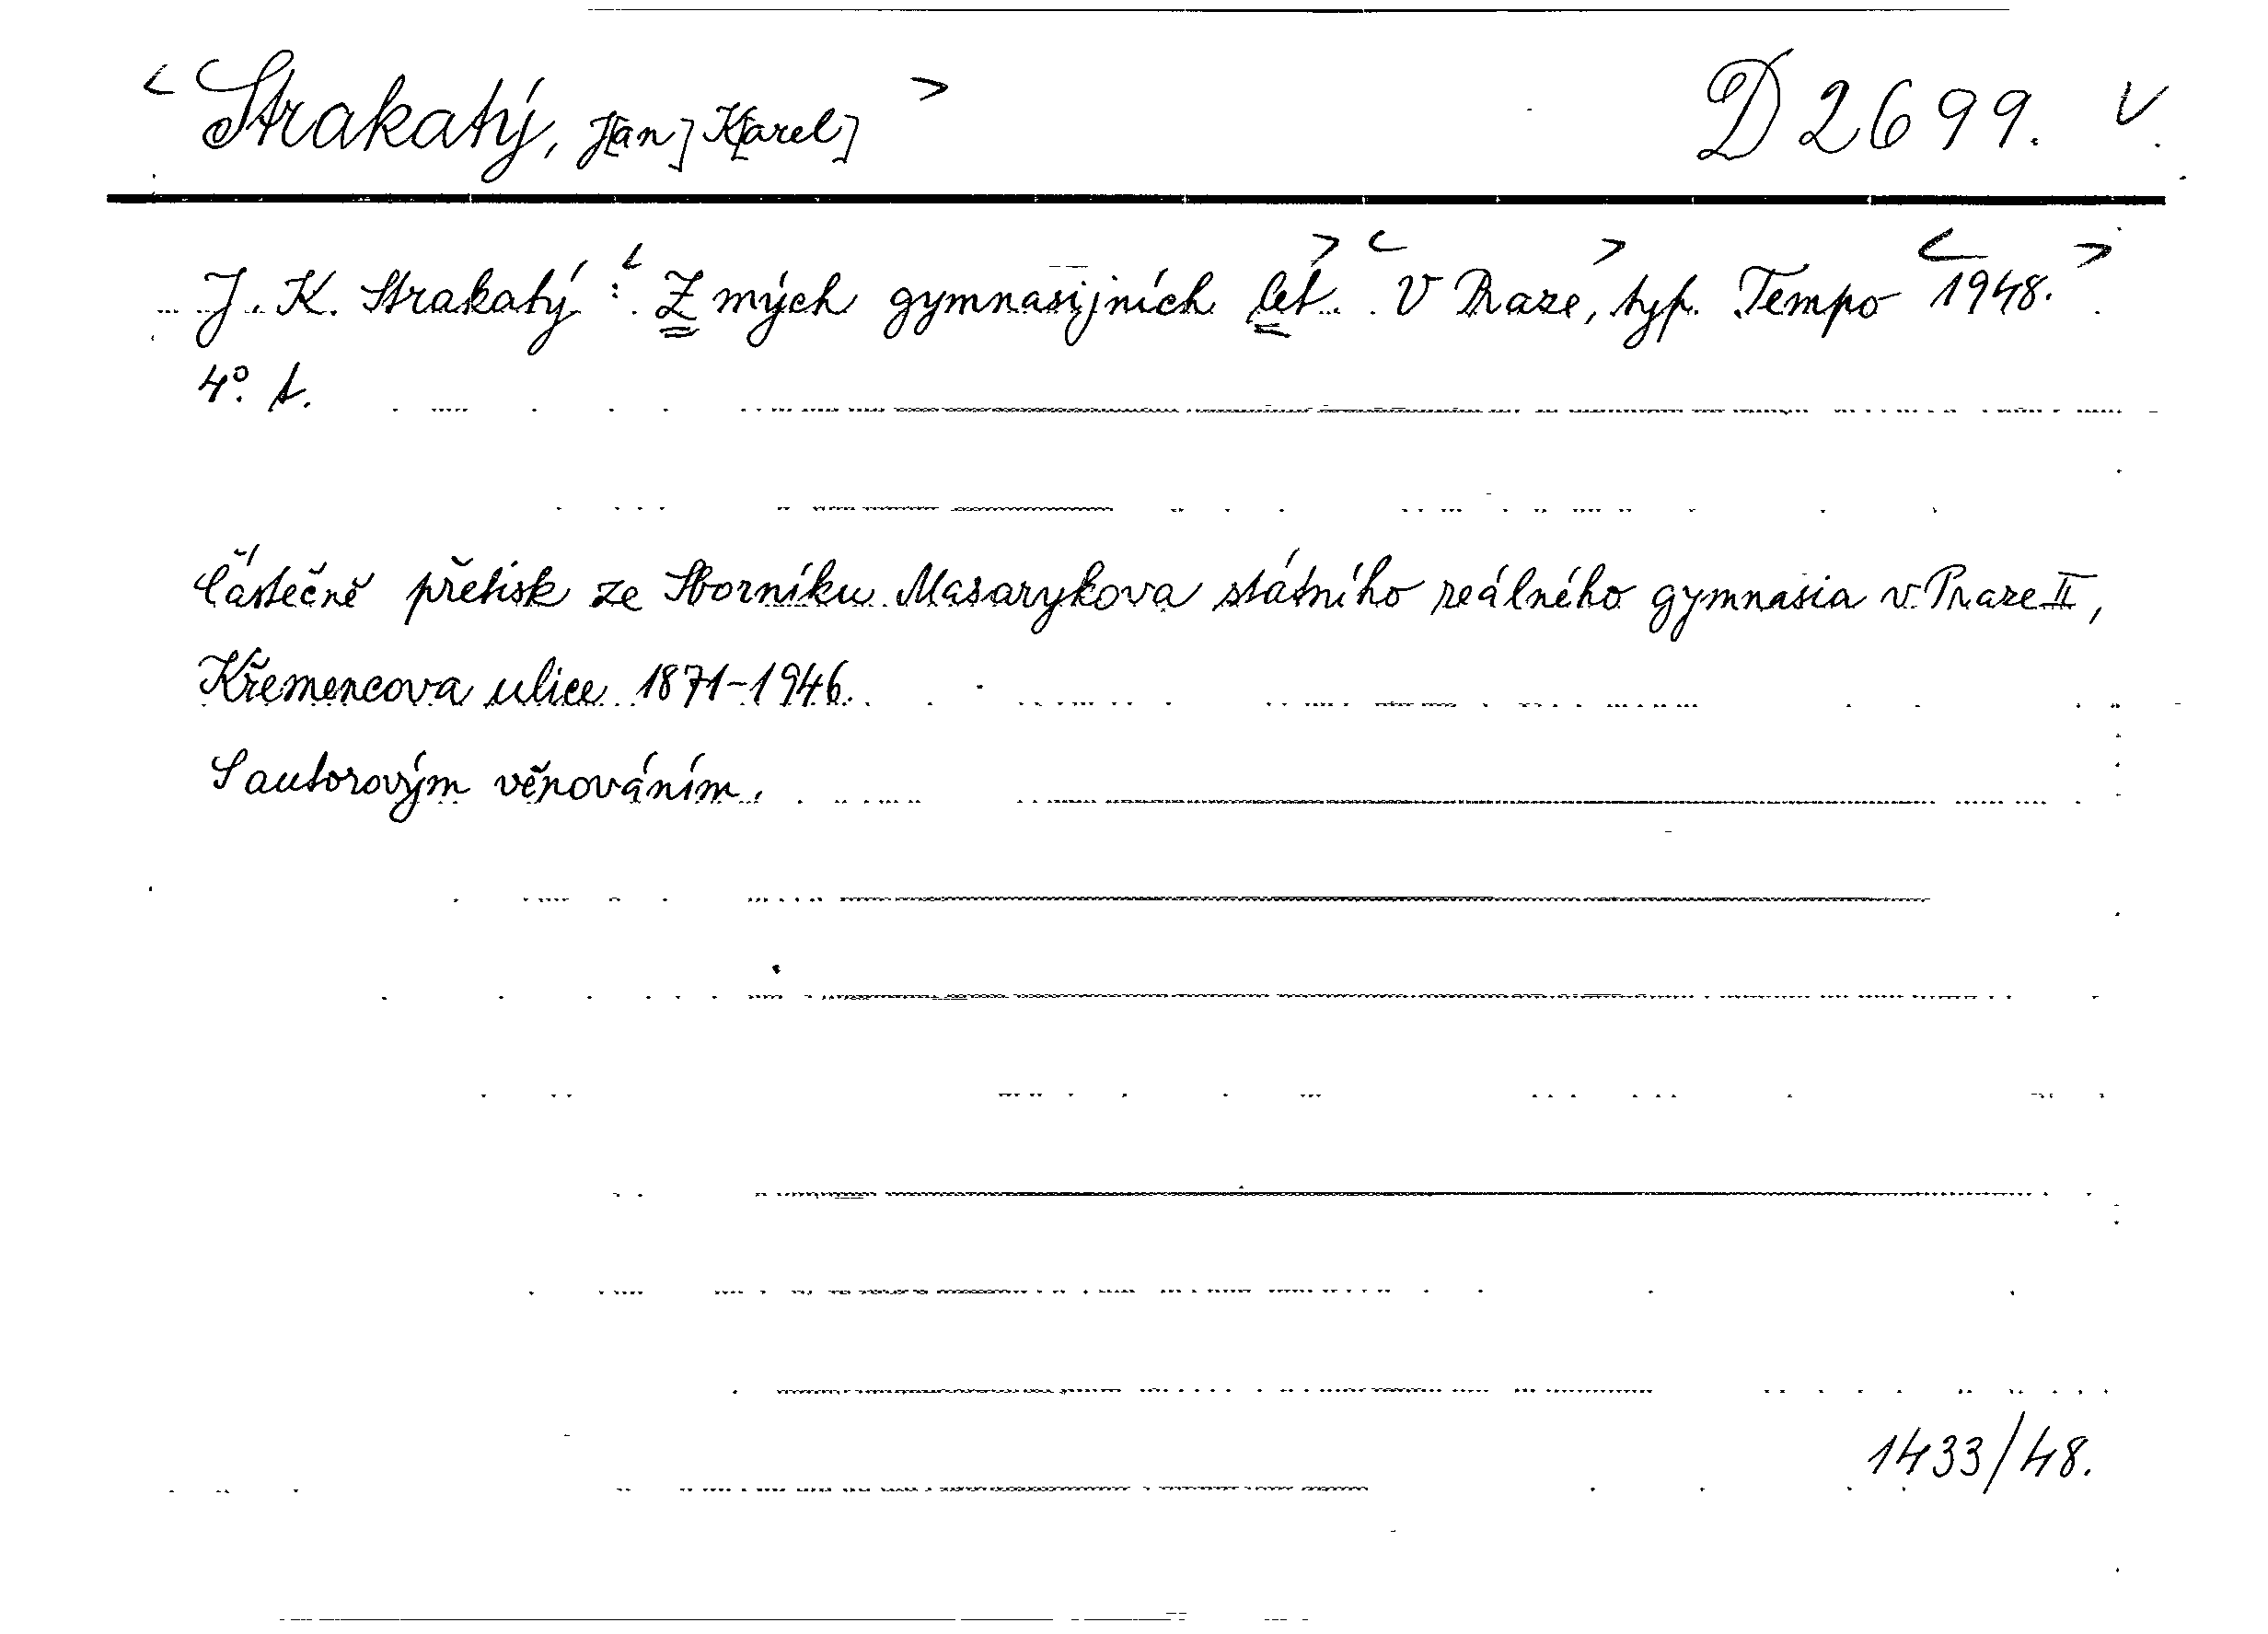 < Strakatý, J[an] K[arel] > D 2699. V
J. K. Strakatý: < Z mých gymnasijních let. > < V Praze, > typ. Tempo < 1948. >
4°.
Částečně přetisk ze Sborníku Masarykova státního reálného gymnasia v Praze II,
Křemencova ulice 1871-1946.
S autorovým věnováním.
1433/48.